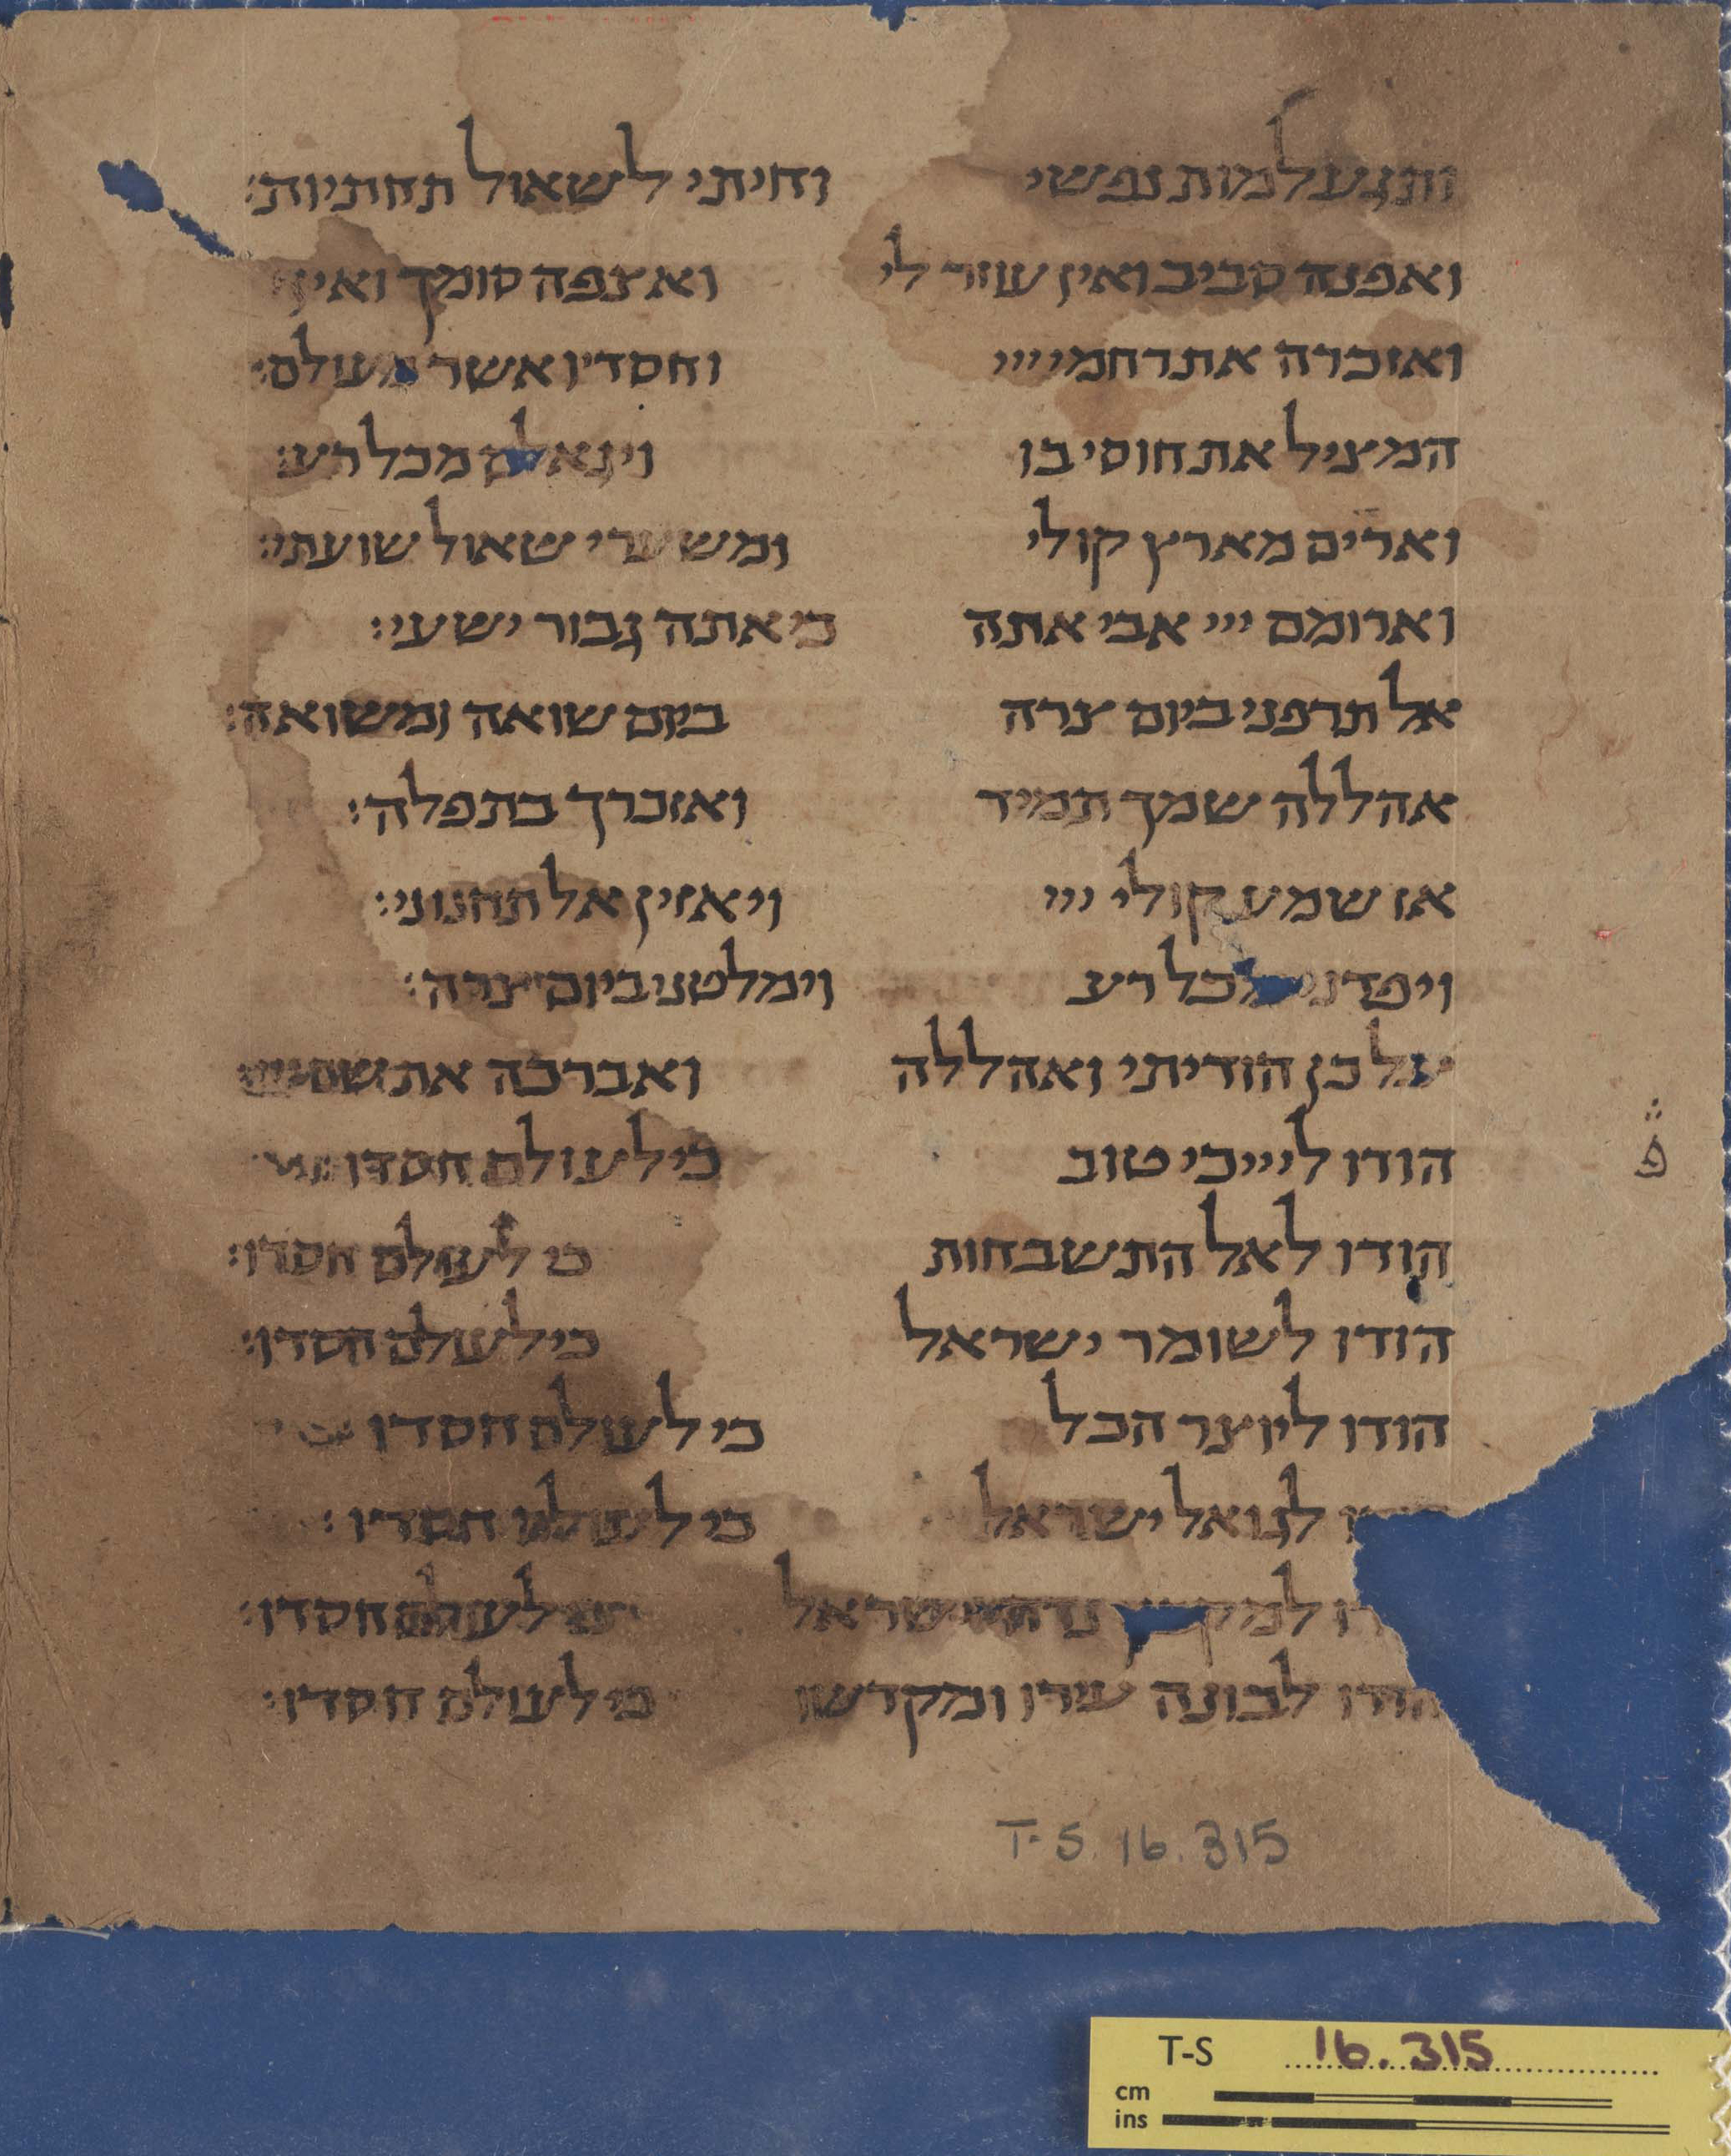 ותגע למות נפשי וחיתי לשאול תחתיות:
ואפנה סביב ואין עוזר לי ואצפה סומך ואין
ואזכרה את רחמי ייי וחסדיו אשר מעולם:
המציל את חוסי בו ויגאלם מכל רע:
וארים מארץ קולי ומשערי שאול שועתי:
וארומם ייי אבי אתה כי אתה גבור ישעי:
אל תרפני ביום צרה ביום שואה ומשואה:
אהללה שמך תמיד ואזכרך בתפלה:
אז שמע קולי ייי ויאזין אל תחנוני:
ויפדני מכל רע וימלטני ביום צרה:
על כן הודיתי ואהללה ואברכה את שם
הודו לייי כי טוב כי לעולם חסדו
פ
הודו לאל התשבחות כי לעולם חסדו:
הודו לשומר ישראל כי לעולם חסדו:
הודו ליוצר הכל כי לעולם חסדו
לגואל ישראל כי לעולם חסדו:
נדחי ישראל כי לעולם חסדו:
הודו לבונה עירו ומקדשו כי לעולם חסדו:
T-S. 16.315
T-S 16.315
cm
ins